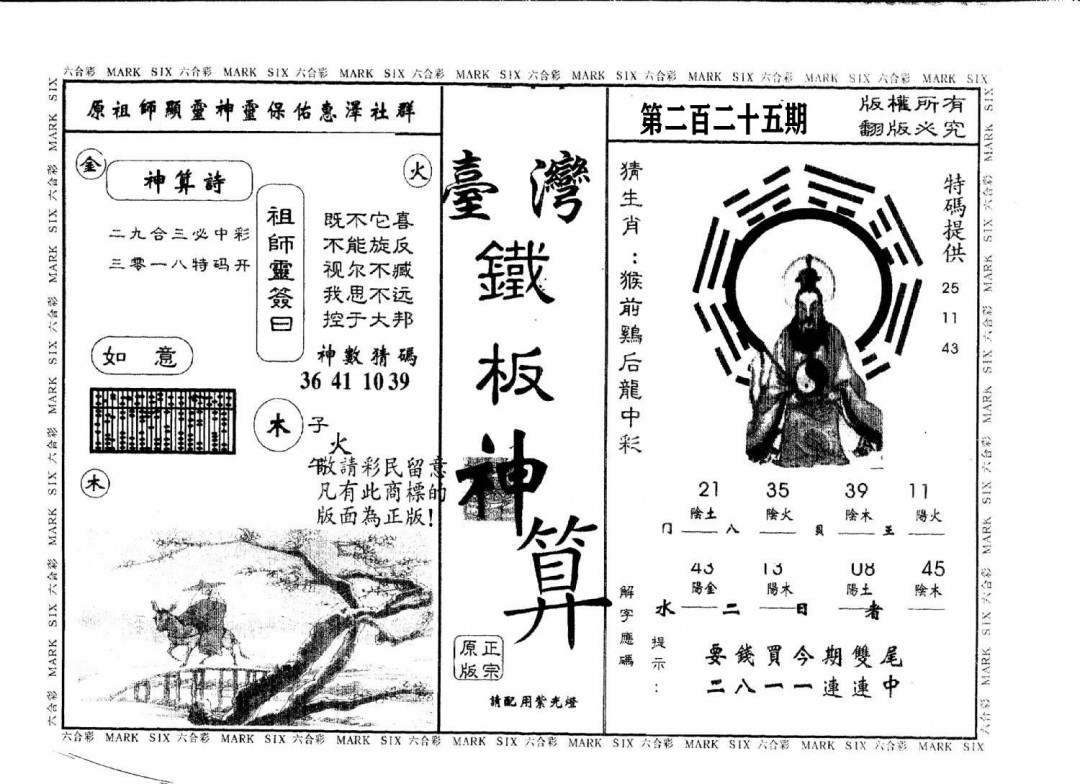 六合彩 MARK SIX 六合彩 MARK SIX 六合彩 MARK SIX 六合彩 MARK SIX 六合彩 MARK SIX 六合彩 MARK SIX 六合彩 MARK SIX 六合彩 MARK SIX
原祖師顯靈神靈保佑惠澤社群
金
火
神算詩
二九合三必中彩
三零一八特码开
祖師靈簽曰
既不它喜
不能旋反
视尔不臧
我思不远
控于大邦
神數猜碼
36 41 10 39
如意
木
子
火
午敬請彩民留意
凡有此商標的
版面為正版!
木
臺灣
鐵
板
神
算
正宗
原版
請配用紫光燈
第二百二十五期
版權所有
翻版必究
猜生肖:猴前鷄后龍中彩
特碼提供
25
11
43
21 35 39 11
陰土 陰火 陰木 陽火
八 貝 王
43 13 08 45
陽金 陽木 陽土 陰木
水 二 日 者
解字應碼
提示:
要錢買今期雙尾
二八一一連連中
六合彩 MARK SIX 六合彩 MARK SIX 六合彩 MARK SIX 六合彩 MARK SIX 六合彩 MARK SIX 六合彩 MARK SIX 六合彩 MARK SIX 六合彩 MARK SIX